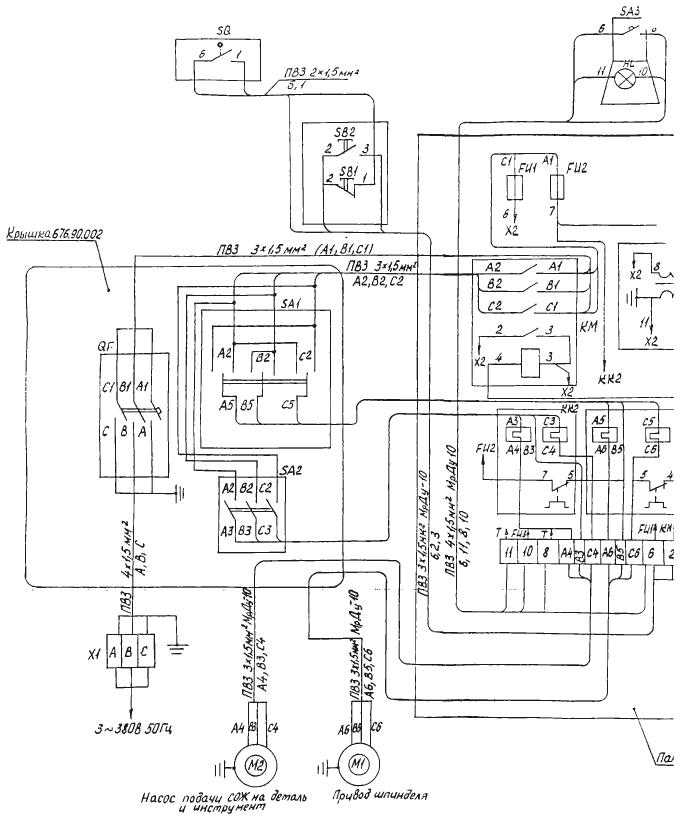 SQ
6 1
ПВЗ 2×1,5мм²
6,1
SA3
6
11 HL 10
SB2
2 3
SB1
2 1
C1 A1
FU1 FU2
6 7
X2
Крышка 676.90.002
ПВЗ 3×1,5мм² (A1, B1, C1)
ПВЗ 3×1,5мм²
A2, B2, C2
A2 A1
B2 B1
C2 C1
KM
2 3
X2 4 3
X2
KK2
X2 8
11
X2
QF
C1 B1 A1
C B A
SA1
A2 B2 C2
A5 B5 C5
SA2
A2 B2 C2
A3 B3 C3
KK2
A3 C3 A5 C5
A4 B3 C4 A6 B5 C6
FU2
7 5 5 4
ПВЗ 3×1,5мм² МрДу-10
6, 2, 3
ПВЗ 4×1,5мм² МрДу-10
6, 11, 8, 10
T FU3 T FU1 KK
11 10 8 A4 B3 C4 A6 B5 C6 6 2
ПВЗ 4×1,5мм²
A, B, C
X1 A B C
3~380В 50Гц
ПВЗ 3×1,5мм² МрДу-10
A4, B3, C4
ПВЗ 3×1,5мм² МрДу-10
A6, B5, C6
A4 B3 C4
A6 B5 C6
M2 M1
Насос подачи СОЖ на деталь
и инструмент
Привод шпинделя